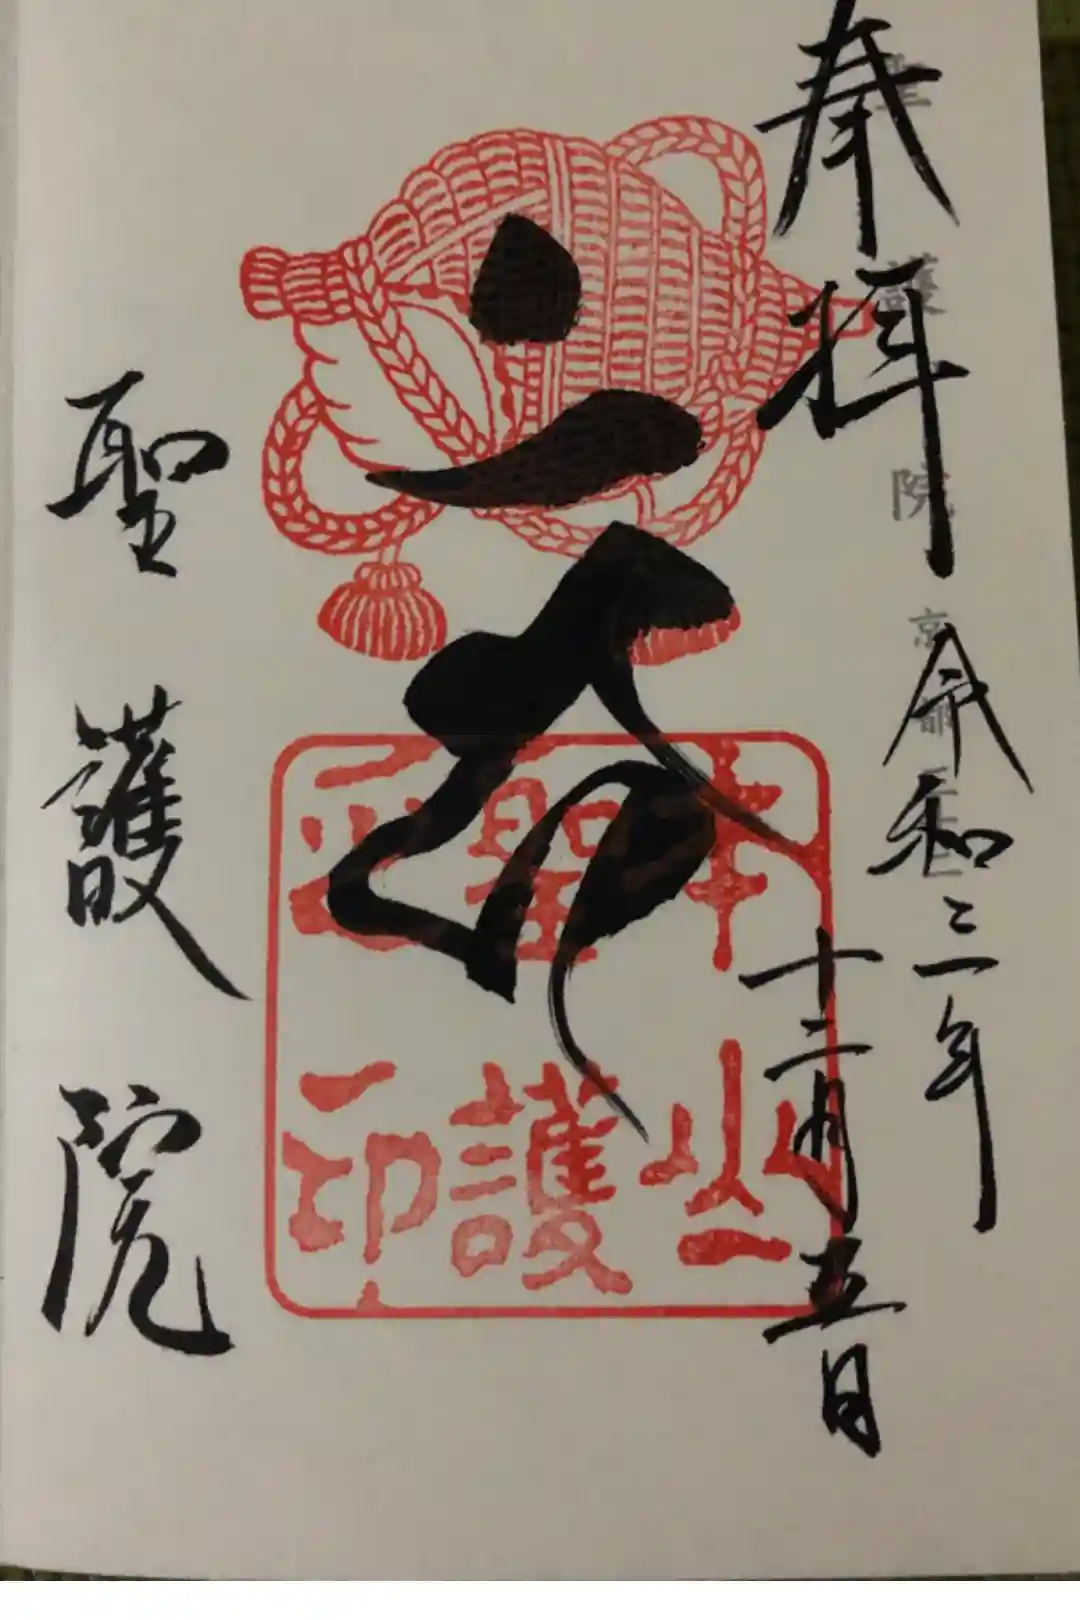 奉拝
令和三年
十二月五日
本山
聖護
之印
聖護院
聖護院
京都